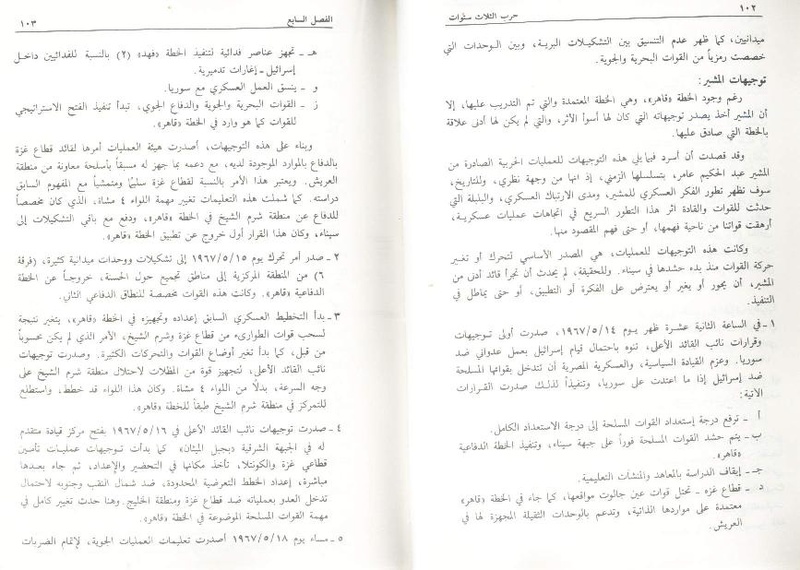 ١٠٢
حرب الثلاث سنوات
ميدانيين، كما ظهر عدم التنسيق بين التشكيلات البرية، وبين الوحدات التي
خصصت رمزياً من القوات البحرية والجوية.
توجيهات المشير:
رغم وجود الخطة «قاهر»، وهي الخطة المعتمدة والتي تم التدريب عليها، إلا
أن المشير أخذ يصدر توجيهاته التي كان لها أسوأ الأثر، والتي لم يكن لها أدنى علاقة
بالخطة التي صادق عليها.
وقد قصدت أن أسرد فيما يلي هذه التوجيهات للعمليات الحربية الصادرة من
المشير عبد الحكيم عامر، بتسلسلها الزمني، إذ انها من وجهة نظري، وللتاريخ،
سوف يظهر تطور الفكر العسكري للمشير، ومدى الارتباك العسكري، والبلبلة التي
حدثت للقوات والقادة اثر هذا التطور السريع في اتجاهات عمليات عسكرية،
أرهقت قواتنا من ناحية فهمها، أو حتى فهم المقصود منها.
وكانت هذه التوجيهات للعمليات، هي المصدر الأساسي لتحرك أو تغير
حركة القوات منذ بدء حشدها في سيناء. وللحقيقة، لم يحدث أن تجرأ قائد أدنى من
المشير، أن يحور أو يغير أو يعترض على الفكرة أو التطبيق، أو حتى يماطل في
التنفيذ.
١ - في الساعة الثانية عشرة ظهر يوم ١٩٦٧/٥/١٤، صدرت أولى توجيهات
وقرارات نائب القائد الأعلى، تنوه باحتمال قيام إسرائيل بعمل عدواني ضد
سوريا. وعزم القيادة السياسية، والعسكرية المصرية أن تتدخل بقواتها المسلحة
ضد إسرائيل إذا ما اعتدت على سوريا، وتنفيذاً لذلك صدرت القرارات
الآتية:
أ - ترفع درجة إستعداد القوات المسلحة إلى درجة الاستعداد الكامل.
ب - يتم حشد القوات المسلحة فوراً على جبهة سيناء، وتنفيذ الخطة الدفاعية
«قاهر».
جـ - إيقاف الدراسة بالمعاهد والمنشآت التعليمية.
د - قطاع غزه - تحتل قوات عين جالوت مواقعها، كما جاء في الخطة «قاهر»
معتمدة على مواردها الذاتية، وتدعم بالوحدات الثقيلة المجهزة لها في
العريش.
الفصل السابع
١٠٣
هـ - تجهز عناصر فدائية لتنفيذ الخطة «فهد» (٢) بالنسبة للفدائيين داخل
إسرائيل - إغارات تدميرية.
و - ينسق العمل العسكري مع سوريا.
ز - القوات البحرية والجوية والدفاع الجوي، تبدأ تنفيذ الفتح الاستراتيجي
للقوات كما هو وارد في الخطة «قاهر».
وبناء على هذه التوجيهات، أصدرت هيئة العمليات أمرها لقائد قطاع غزة
بالدفاع بالموارد الموجودة لديه، مع دعمه بما جهز له مسبقاً بأسلحة معاونة من منطقة
العريش. ويعتبر هذا الأمر بالنسبة لقطاع غزة سليماً ومتمشياً مع المفهوم السابق
دراسته. كما شملت هذه التعليمات تغير مهمة اللواء ٤ مشاة، الذي كان مخصصاً
للدفاع عن منطقة شرم الشيخ في الخطة «قاهر»، ودفع مع باقي التشكيلات إلى
سيناء، وكان هذا القرار أول خروج عن تطبيق الخطة «قاهر».
٢ - صدر أمر تحرك يوم ١٩٦٧/٥/١٥ إلى تشكيلات ووحدات ميدانية كثيرة، (فرقة
٦) من المنطقة المركزية إلى مناطق تجميع حول الحسنة، خروجاً عن الخطة
الدفاعية «قاهر». وكانت هذه القوات مخصصة للنطاق الدفاعي الثاني.
٣ - بدأ التخطيط العسكري السابق إعداده وتجهيزه في الخطة «قاهر»، يتغير نتيجة
لسحب قوات الطوارىء من قطاع غزة وشرم الشيخ، الأمر الذي لم يكن محسوباً
من قبل، كما بدأ تغير أوضاع القوات والتحركات الكثيرة. وصدرت توجيهات
نائب القائد الأعلى، لتجهيز قوة من المظلات لاحتلال منطقة شرم الشيخ على
وجه السرعة، بدلاً من اللواء ٤ مشاة. وكان هذا اللواء قد خطط، واستطلع
للتمركز في منطقة شرم الشيخ طبقاً للخطة «قاهر».
٤ - صدرت توجيهات نائب القائد الأعلى في ١٩٦٧/٥/١٦ بفتح مركز قيادة متقدم
له في الجبهة الشرقية (بجبل الميثان» كما بدأت توجيهات عمليات تأمين
قطاعي غزة والكونتلا، تأخذ مكانها في التحضير والإعداد، ثم جاء بعدها
مباشرة، إعداد الخطط التعرضية المحدودة، ضد شمال النقب وجنوبه لاحتمال
تدخل العدو بعملياته ضد قطاع غزة ومنطقة الخليج. وهنا حدث تغير كامل في
مهمة القوات المسلحة الموضوعة في الخطة «قاهر».
٥ - مساء يوم ١٩٦٧/٥/١٨ أصدرت تعليمات العمليات الجوية، لإتمام الضربات